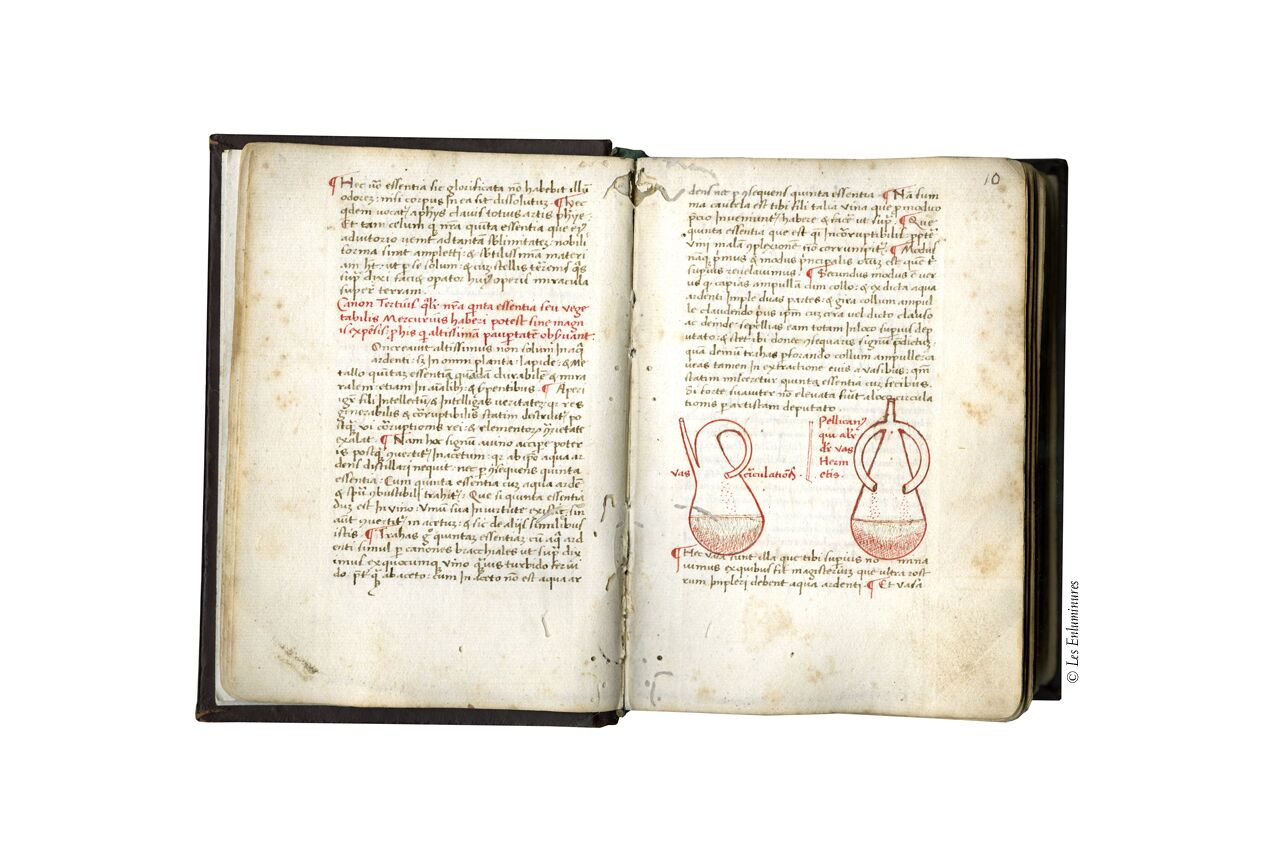 ¶ Hec uo essentia sic glorificata no habebit illu
odorez: nisi corpus in ea sit dissolutuz. ¶ Hec
qdem uocat a phys clauis totius artis phye.
Et tam celum q nra quita essentia que eiꝰ
adiutorio uenit ad tantam sblimitatez: nobili
forma simt ampletti: & sbtilissima materi
am: ut p se solum: & cuz stellis terenis qs
sup dixi facie opator huiꝰ operis miracula
super terram.
Canon Tertius qlr nra qnta essentia seu vege
tabilis Mercurius haberi potest sine magn
is expesis: phis q altissima paupertate obsuant.
Oncreauit altissimus non solum in aq
ardenti: sz in omni planta: lapide: & me
tallo quitaz essentia quada durabile & mira
ralem: etiam in aialib: & serpentibus. ¶ Aperi
igr fili intellectu & intelligas ueritatez: qr res
generabilis & corruptibilis statim destruit: po
stq ui coruptionis rei: & elementorz uarietate
exalat. ¶ Nam hoc signum a uino accipe poter
is postq uertit in acetum: qr ab ipo aqua ar
dens distillari nequit: nec p nsequens quinta
essentia. Cum quinta essentia cuz aqua arde
& spu obustibili trahit. Que si quinta essentia
duz est in uino: unam sua in uirtute sin
aut uertit in acetuz: & sic de aliis similibus
istis. ¶ Trahas g quintaz essentiaz cu aq ard
enti simul p canones bracchiales ut sup dix
imus ex quocumq uino quis turbido
do. pt q ab aceto: cum in aceto no est aqua ar
10
dens nec p nsequens quinta essentia ¶ Na sum
ma cautela est tibi fili talia uina que p modico
pcio inueniunt habere & face ut sup. ¶ Que
quinta essentia que est qi incorruptibilis pote
uini malam oplexione no corrumpit. ¶ Modus
naq primus & modus principalis est que
supius reuelauimus. ¶ Secundus modus e uer
us q capias ampullā cum collo: & ex dicta aqua
ardenti imple duas partes: & gira collum ampul
le claudendo pus ipm cuz cera uel dicto clauso
ac deinde sepellias eam totam in loco supius dep
utato: & stet ibi donec nsequaris signu pdictuz:
qua demu trahas pforando collum ampulle: ca
ueas tamen in extractione euis a uasibus: qm
statim misceretur quinta essentia cuz fecibus.
Si forte suauiter no eleuata fiut a loco circula
tionis p artistam deputato.
vas circulationis.
Pellicanꝰ
qui alr
dr vas
Herm
etis.
¶ Hec uasa sunt illa que tibi supius no mina
uimus ex quibus fit magisteriuz que ultra rost
rum impleri debent aqua ardenti. ¶ Et uasa
© Les Enluminures